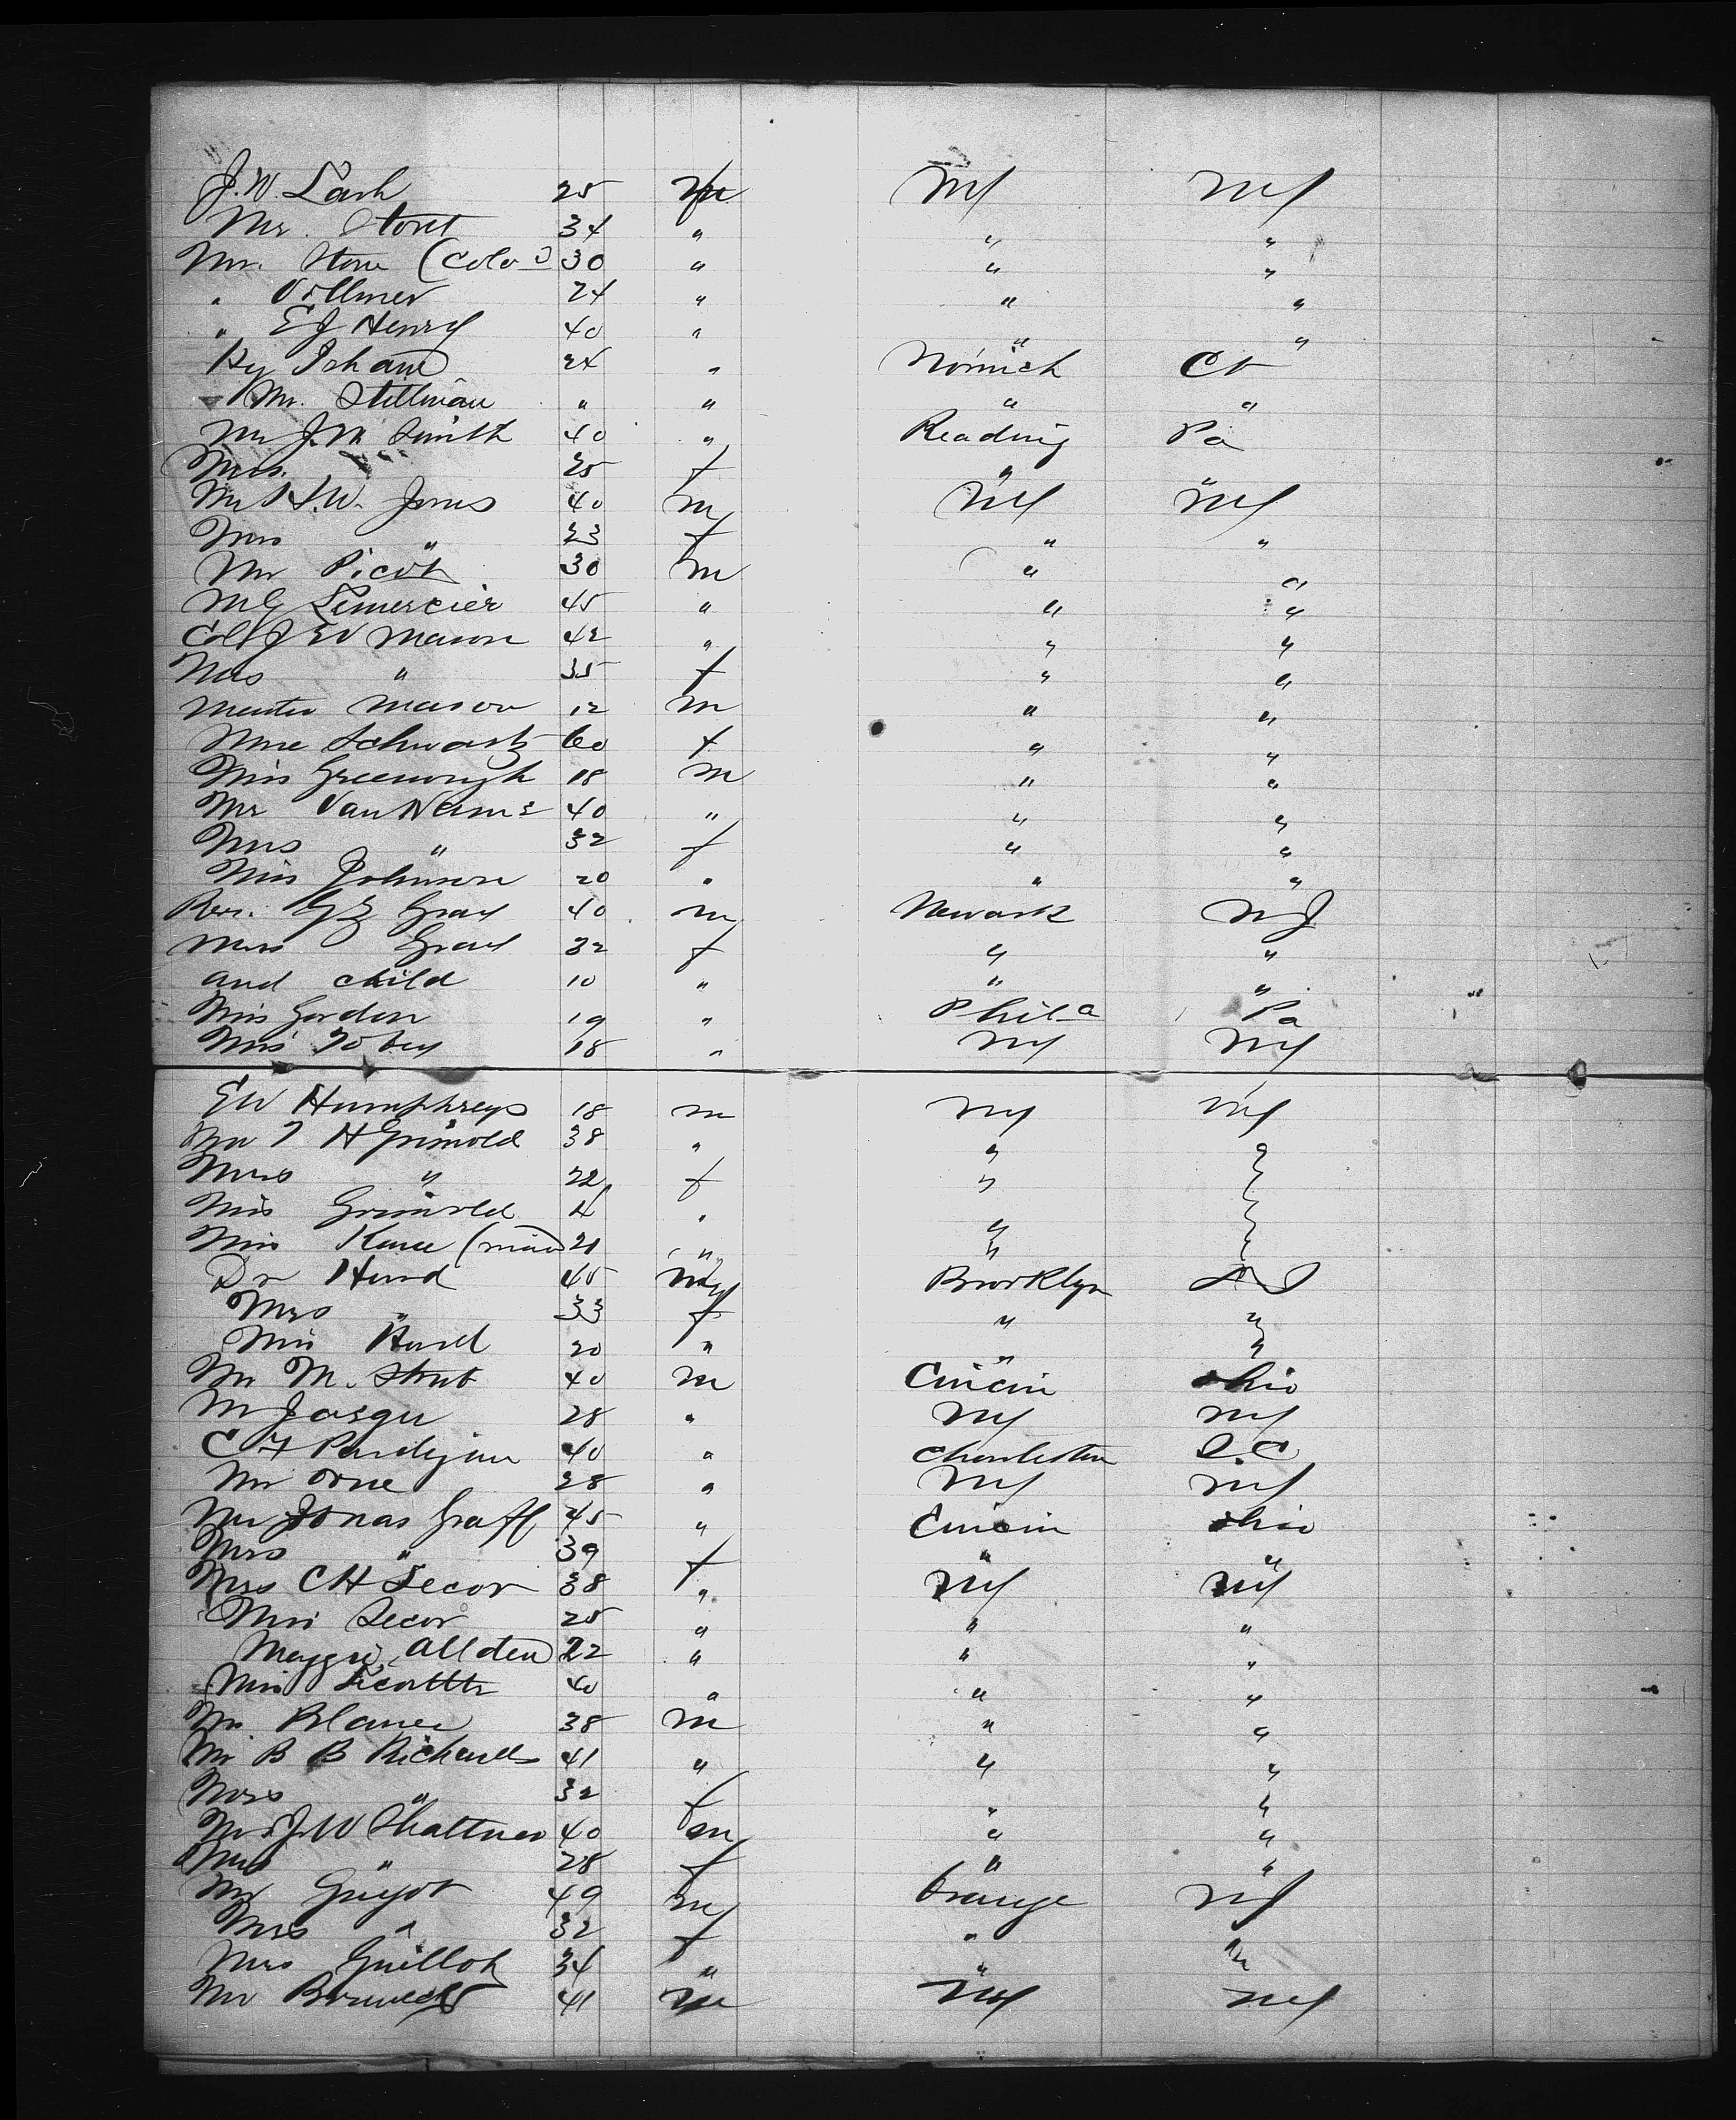 J. W. Lash 25 m NY NY
Mr. Storet 34 " " "
Mr. Stone (Cold) 30 " " "
" Vollmer 24 " " "
" E J Henry 40 " " "
Hy Isham 24 " Norwich Ct
Mr. Stillman " " " "
Mr J. M Smith 40 " Reading Pa
Mrs. " 25 f " "
Mr H. W. Jones 40 m NY NY
Mrs " 23 f " "
Mr Picot 30 m " "
M G Lemercier 45 " " "
Col J W Mason 42 " " "
Mrs " 35 f " "
Master Mason 12 m " "
Mme Schwartz 60 f " "
Miss Greenough 18 m " "
Mr Van Name 40 " " "
Mrs " 32 f " "
Miss Johnson 20 " " "
Rev. G Z Gray 40 m Newark NJ
Mrs Gray 32 f " "
and child 10 " " "
Miss Gordon 19 " Phila Pa
Miss Tobey 18 " NY NY
E W Humphreys 18 m NY NY
Mr T H Grinnold 38 " " "
Mrs " 22 f " "
Miss Grinnold 14 " " "
Miss Kane (maid) 21 " " "
Dr Hurd 45 m Brooklyn
Mrs " 33 f " "
Miss Hurd 20 " " "
Mr M. Strub 40 m Cincin Ohio
M 28 " NY NY
C F 40 " Charleston S.C
Mr Orne 28 " NY NY
Mr Jonas Graff 45 " Cincin Ohio
Mrs " 39 f " "
Mrs C H Secor 38 " NY NY
Miss Secor 25 " " "
Maggie Allden 22 " " "
Miss 40 " " "
Mr Blanee 38 m " "
Mr B B Richards 41 " " "
Mrs " 32 f " "
Mr J W 40 m " "
Mrs " 28 f " "
Mr Guyot 49 m Orange NJ
Mrs " 32 f " "
Mrs Guillot 34 " " "
Mr 41 m NY NY